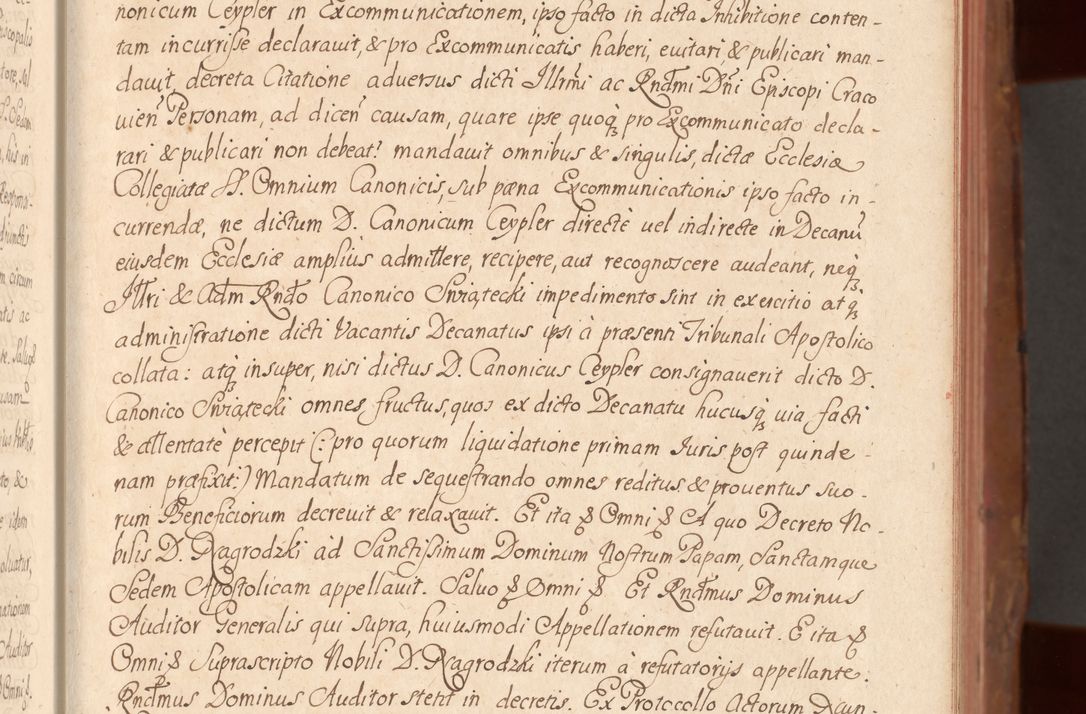 nonicum Ceypler in Excommunicationem, ipso facto in dicta Inhibitione conten-
tam incurrisse declarauit, & pro Excommunicatis haberi, euitari, & publicari man-
dauit, decreta Citatione aduersus dicti Illrmi ac Rndmi Dni Episcopi Craco
uien Personam, ad dicen causam, quare ipse quoq pro Excommunicato decla-
rari & publicari non debeat? mandauit omnibus & singulis, dictæ Ecclesiæ
Collegiatæ SS. Omnium Canonicis, sub pæna Excommunicationis ipso facto in-
currendæ, ne dictum D. Canonicum Ceypler directè uel indirecte in Decanu
eiusdem Ecclesiæ amplius admittere, recipere, aut recognoscere audeant, neq
Illri & Adm Rndo Canonico Swiątecki impedimento sint in exercitio atq
administratione dicti Vacantis Decanatus ipsi à præsenti Tribunali Apostolico
collata: atq insuper, nisi dictus D. Canonicus Ceypler consignauerit dicto D.
Canonico Swiątecki omnes fructus, quos ex dicto Decanatu hucusq via facti
& attentatè percepit (: pro quorum liquidatione primam Iuris post quinde-
nam præfixit:) Mandatum de sequestrando omnes reditus & prouentus suo-
rum Beneficiorum decreuit & relaxauit. Et ita & Omni & A quo Decreto No-
bilis D. Nagrodzki ad Sanctissimum Dominum Nostrum Papam, Sanctamque
Sedem Apostolicam appellauit. Saluo & Omni & Et Rndmus Dominus
Auditor Generalis qui supra, huiusmodi Appellationem refutauit. E ita &
Omni & Suprascripto Nobili D. Nagrodzki iterum à refutatorijs appellante.
Rndmus Dominus Auditor stetit in decretis. Ex Protocollo Actorum Nun-